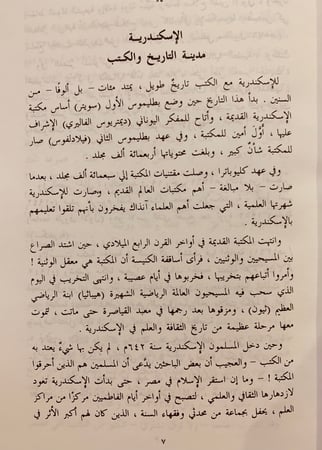 الإسكندرية
مدينة التاريخ والكتب
للإسكندرية مع الكتب تاريخٌ طويل ، يمتد مئات – بل ألوفًا – من
السنين . بدأ هذا التاريخ حين وضع بطليموس الأول (سويتر) أساس مكتبة
الإسكندرية القديمة ، وأتاح للمفكر اليوناني (ديمتريوس الفاليرى) الإشراف
عليها ، أوَّلَ أمين للمكتبة ، وفي عهد بطليموس الثاني (فيلادلفوس) صار
للمكتبة شأنٌ كبير ، وبلغت محتوياتها أربعمائة ألف مجلد .
وفي عهد كليوباترا ، وصلت مقتنيات المكتبة إلى سبعمائة ألف مجلد ، بعدما
صارت – بلا مبالغة – أهم مكتبات العالم القديم ، وصارت للإسكندرية
شهرتها العلمية ، التي جعلت أهم العلماء آنذاك يفخرون بأنهم تلقوا تعليمهم
بالإسكندرية .
وانتهت المكتبة القديمة في أواخر القرن الرابع الميلادي ، حين اشتد الصراع
بين المسيحيين والوثنيين ، فرأى أساقفة الكنيسة أن المكتبة هي معقل الوثنية !
وأمروا أتباعهم بتخريبها ، فخربوها في أيام عصيبة ، وانتهى التخريب في اليوم
الذي سحب فيه المسيحيون العالمة الرياضية الشهيرة (هيباثيا) ابنة الرياضي
العظيم (ثيون) ، ومزقوها بعد رجمها في معبد القياصرة حتى ماتت ، لتموت
معها مرحلة عظيمة من تاريخ الثقافة والعلم في الإسكندرية .
وحين دخل المسلمون الإسكندرية سنة ٦٤٢م ، لم يكن بها شيءٌ يعتد به
من الكتب – والعجيب أن بعض الباحثين يدَّعى أن المسلمين هم الذين أحرقوا
المكتبة ! – وما إن استقر الإسلام في مصر ، حتى بدأت الإسكندرية تعود
لازدهارها الثقافي والعلمي ، لتصبح في أواخر أيام الفاطميين مركزًا من مراكز
العلم ، يحفل بجماعة من محدثي وفقهاء السنة ، الذين كان لهم أكبر الأثر في
٧